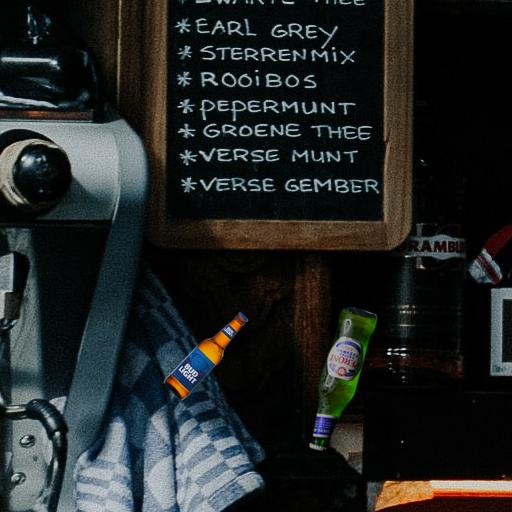 ZWARTE THEE
*EARL GREY
*STERRENMIX
*ROOIBOS
*PEPERMUNT
*GROENE THEE
*VERSE MUNT
*VERSE GEMBER
RAMBU
BUD
LIGHT
PERONI